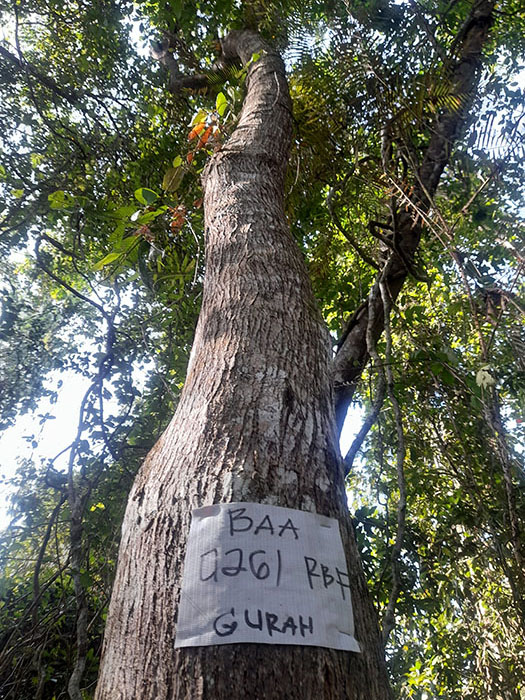 BAA
0261 RBF
GURAH